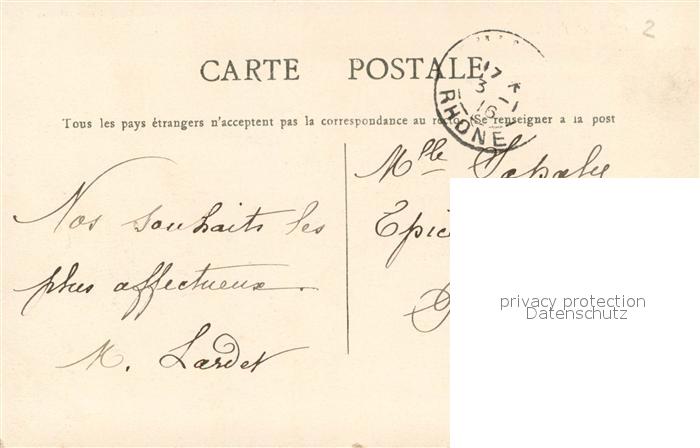 2
CARTE POSTALE
Tous les pays étrangers n'acceptent pas la correspondance au recto (Se renseigner a la post
17
3 - 1
16
RHONE
Nos souhaits les
plus affectueux.
M. Lardet
Mlle
Epic
privacy protection
Datenschutz